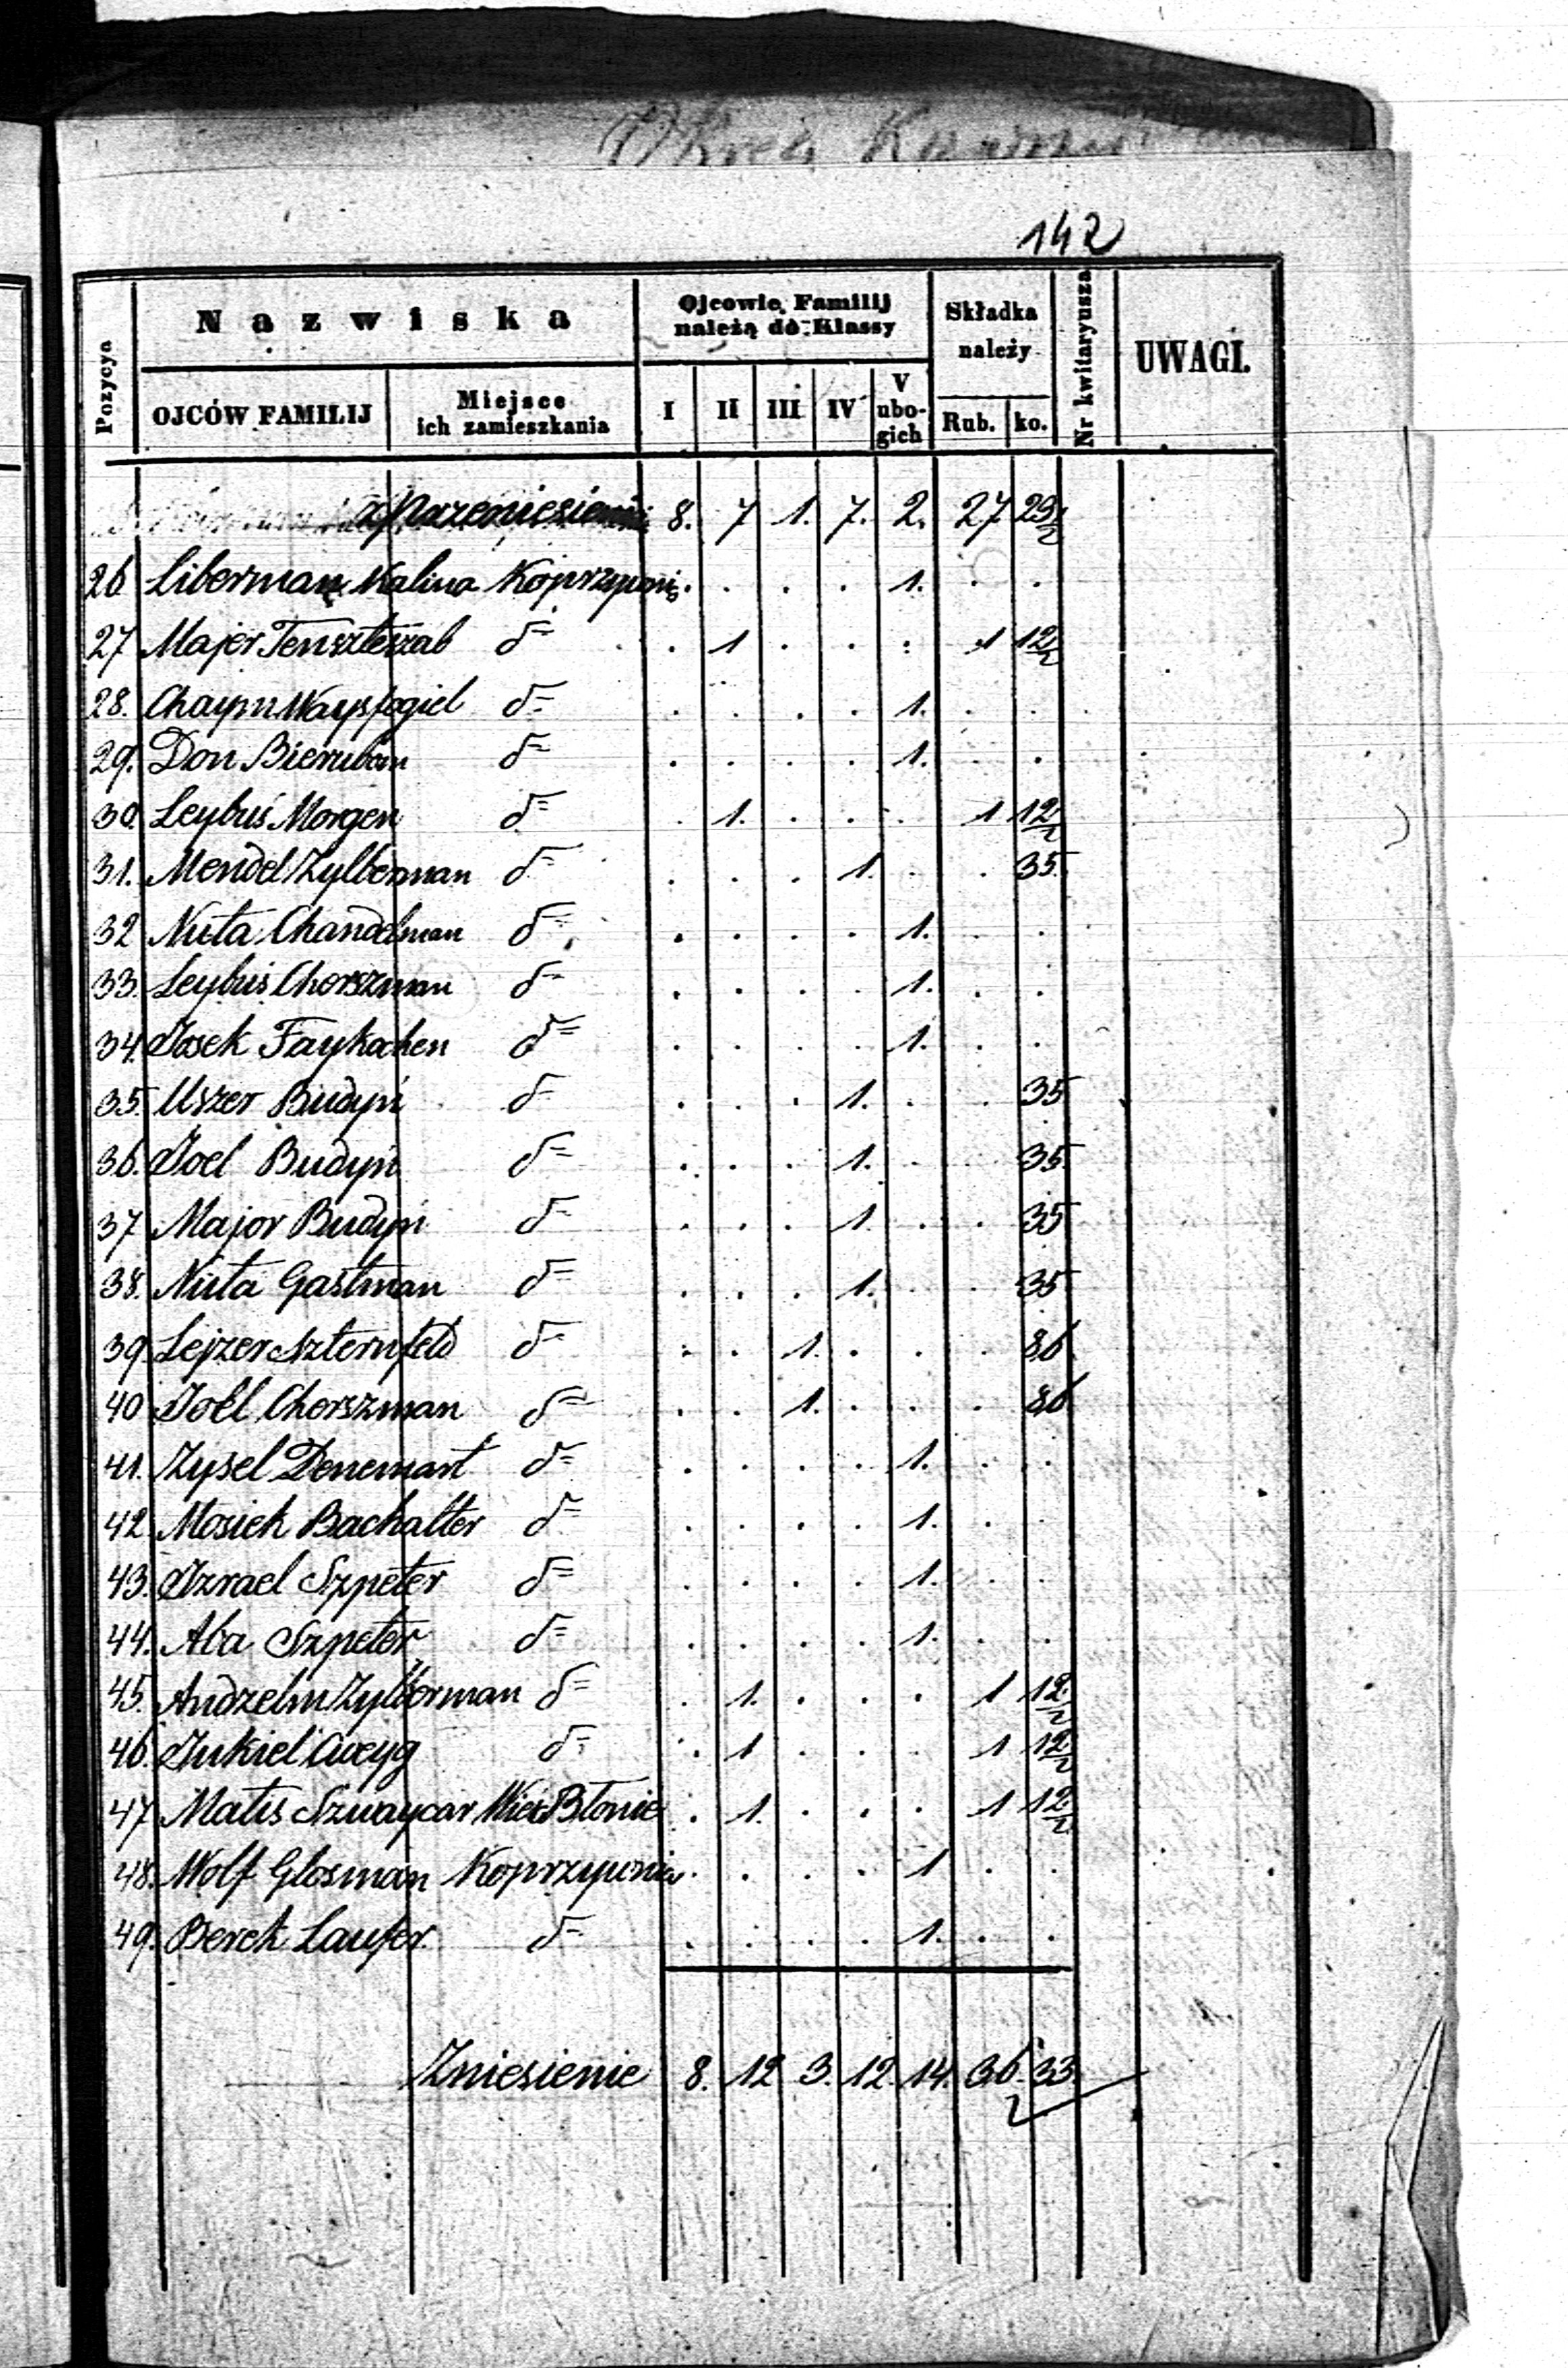 142
Pozycya
Nazwiska
OJCÓW FAMILIJ
Miejsce ich zamieszkania
Ojcowie Familij należą do Klassy
I II III IV V ubogich
Składka należy
Rub. ko.
Nr kwitaryusza
UWAGI.
z Przeniesienia 8. 7 1. 7. 2. 27 29½
26 Liberman Kalina Koprzywni . . . . 1. . .
27 Majer d= . 1 . . . 1 12½
28. Chaym Waysfogiel d= . . . . 1. . .
29. Don d= . . . . 1. . .
30. Leybuś Morgen d= . 1. . . . 1 12½
31. Mendel Zylberman d= . . . 1. . . 35.
32 Nuta Chandelman d= . . . . 1. . .
33. Leybuś Chorszman d= . . . . 1. . .
34. Josek Faykochen d= . . . . 1. . .
35. Uszer Budyń d= . . . 1. . . 35
36. Joel Budyń d= . . . 1. . . 35.
37 Major Budyń d= . . . 1. . . 35
38. Nuta Gastman d= . . . 1. . . 35.
39. Lejzer Szternfeld d= . . 1. . . . 86.
40 Joel Chorszman d= . . 1. . . . 86
41. Zysel Denemart d= . . . . 1. . .
42. Mosiek Bachalter d= . . . . 1. . .
43. Izrael Szpeter d= . . . . 1. . .
44. Aba Szpeter d= . . . . 1. . .
45. Andzelm Zylberman d= . 1. . . . 1 12½
46. Jukiel Cweyg d= . 1 . . . 1 12½
47 Matis Szwaycar Wieś Błonie . 1. . . . 1 12½
48. Wolf Glosman Koprzywnia . . . . 1 . .
49. Berek Laufer d= . . . . 1. . .
Zniesienie 8. 12 3. 12. 14. 36. 33